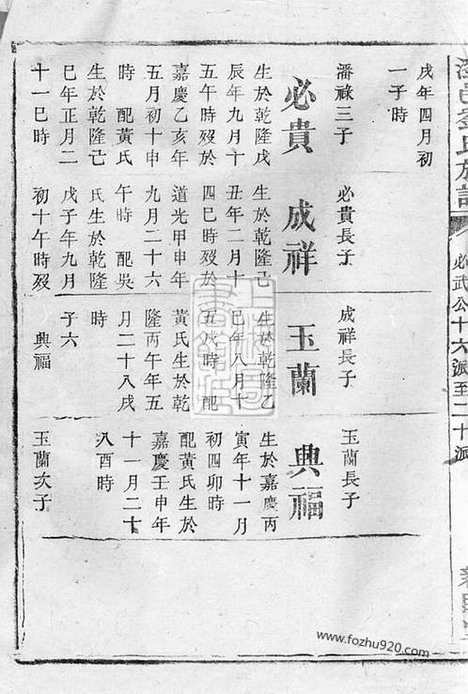 氏族譜
必武公十六派至二十派
戌年四月初
一子時
潘祿三子
必貴
生於乾隆戊
辰年九月十
五午時歿於
嘉慶乙亥年
五月初十申
時 配黃氏
生於乾隆己
巳年正月二
十一巳時
必貴長子
成祥
生於乾隆己
丑年二月十
四巳時歿於
道光甲申年
九月二十六
午時 配吳
氏生於乾隆
戊子年九月
初十午時歿
成祥長子
玉蘭
生於乾隆乙
巳年八月十
五戌時 配
黃氏生於乾
隆丙午年五
月二十八戌
時
子六
典福
玉蘭長子
典福
生於嘉慶丙
寅年十一月
初四卯時
配黃氏生於
嘉慶壬申年
十一月二十
八酉時
玉蘭次子
www.fozhu920.com